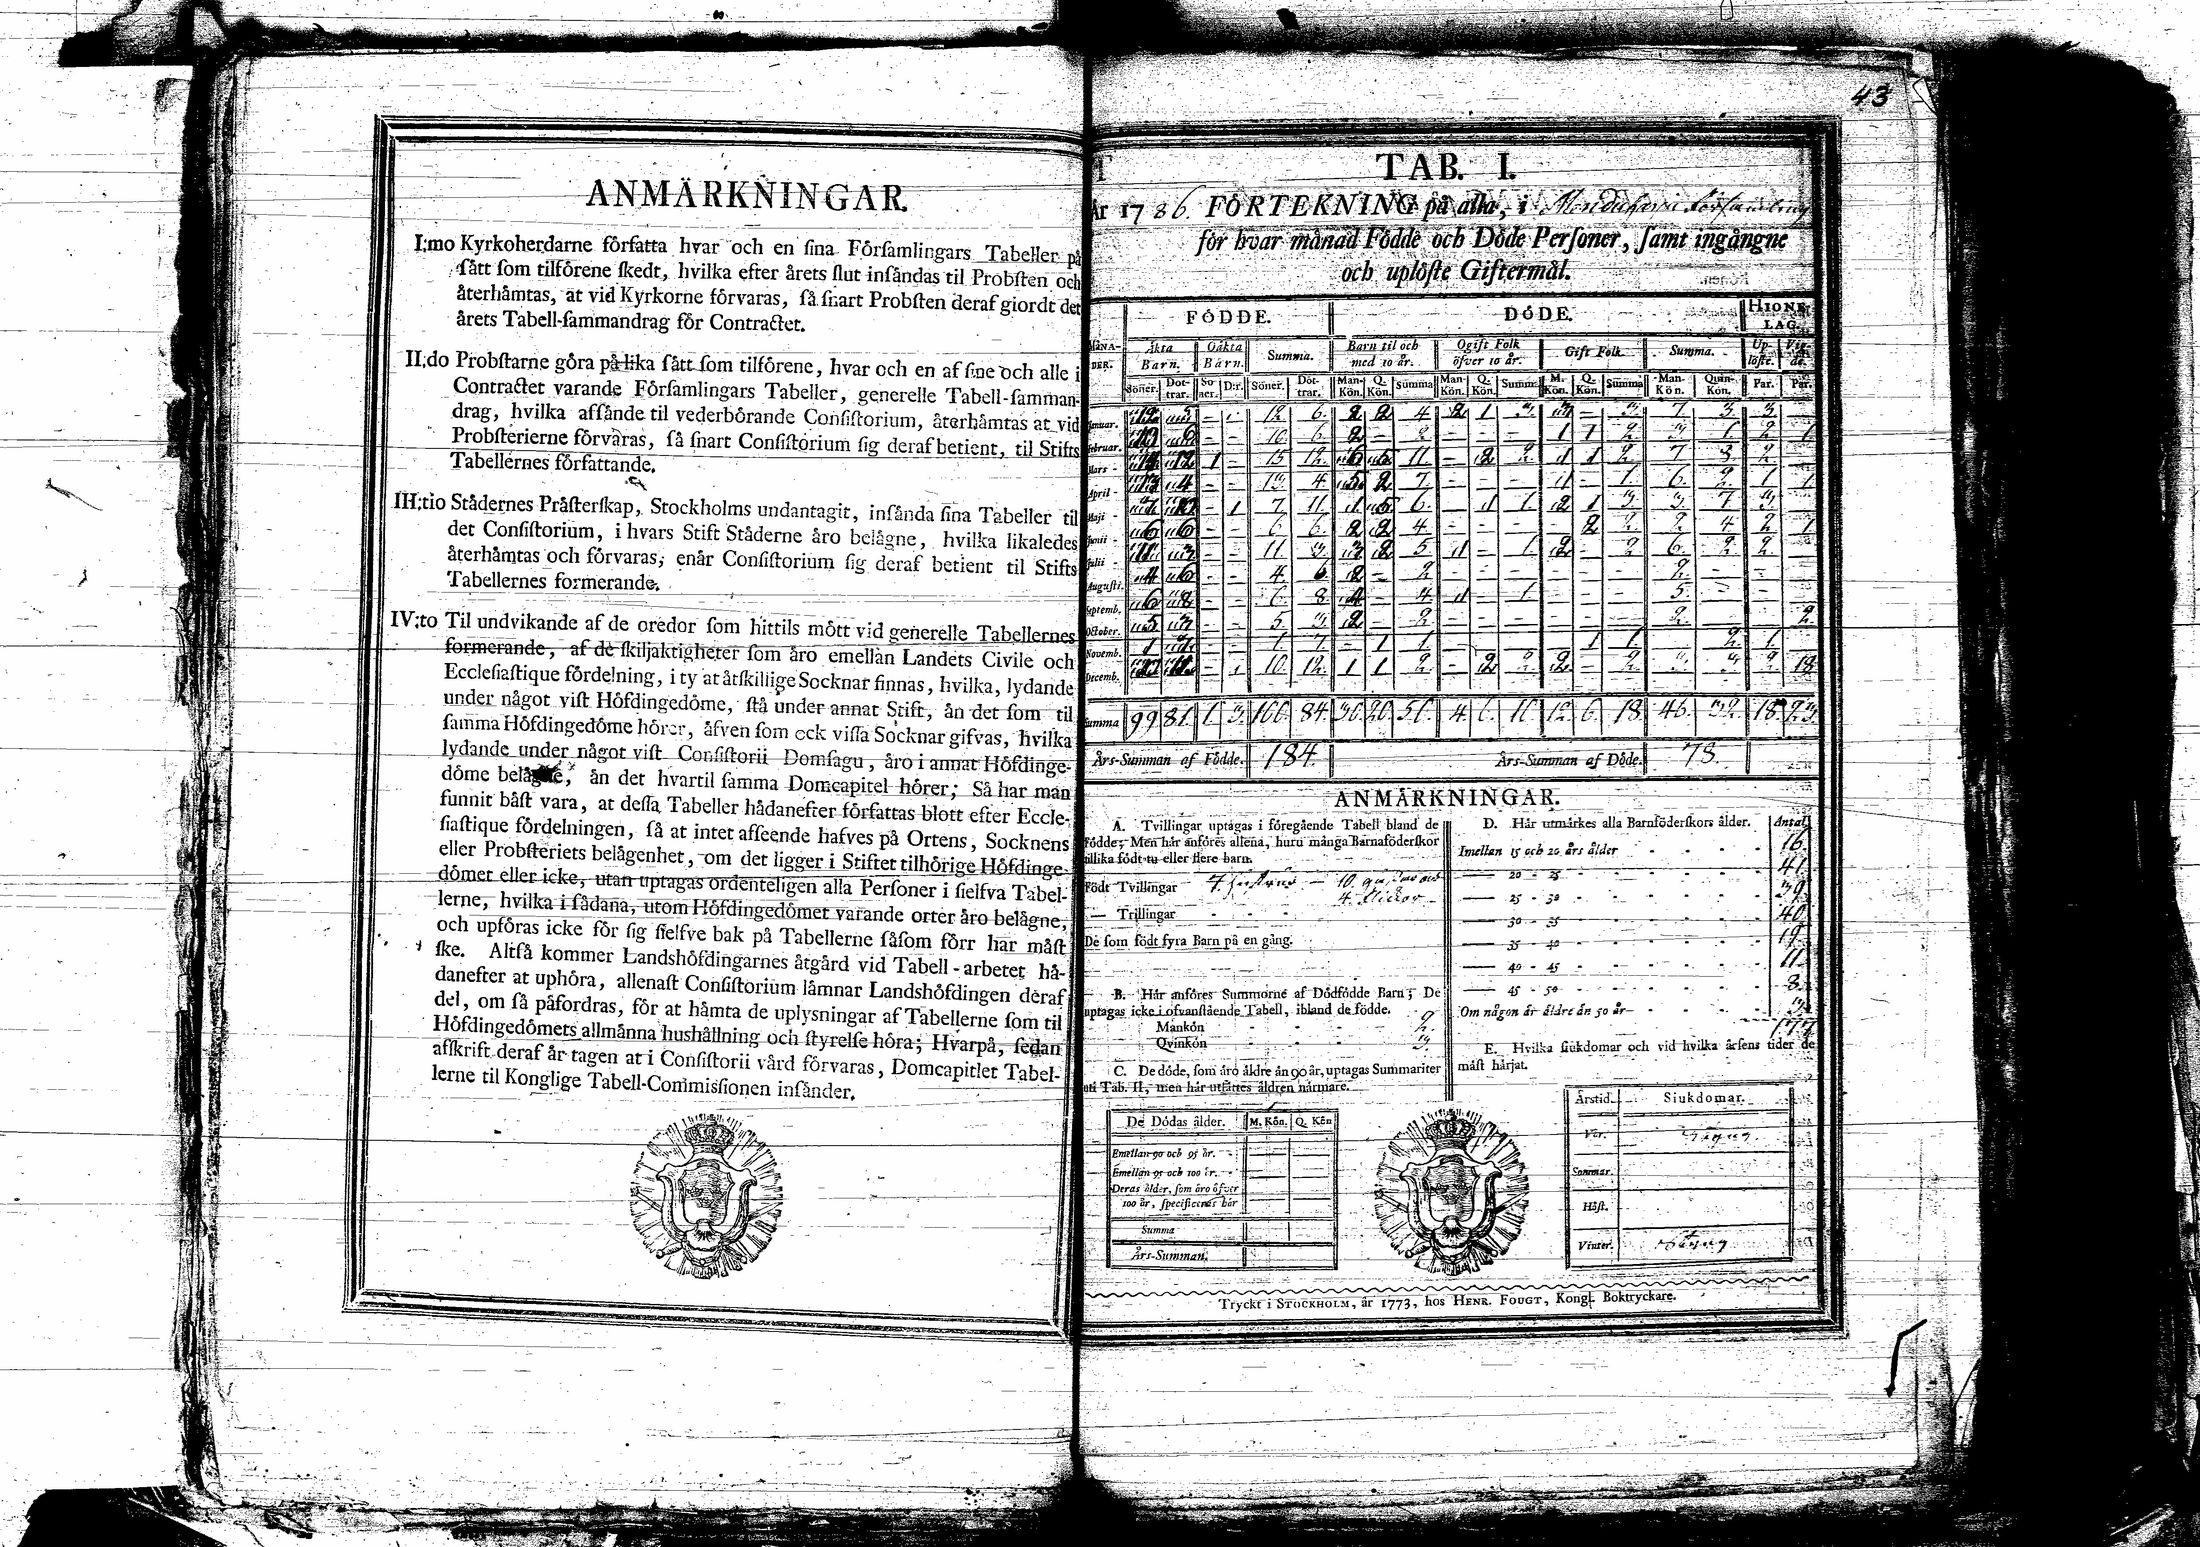 ANMÄRKNINGAR.
I:mo Kyrkoherdarne författa hvar och en sina Församlingars Tabeller på
sått som tilförene skedt, hvilka efter årets slut insåndas til Probsten och
återhåmtas, at vid Kyrkorne förvaras, så snart Probsten deraf giordt det
årets Tabell-sammandrag för Contractet.
II:do Probstarne göra på lika sått som tilförene, hvar och en af sine och alle i
Contractet varande Församlingars Tabeller, generelle Tabell-samman-
drag, hvilka afsånde til vederbörande Consistorium, återhåmtas at vid
Probsterierne förvaras, så snart Consistorium sig deraf betient, til Stifts
Tabellernes författande.
III:tio Stådernes Pråsterskap, Stockholms undantagit, insånda sina Tabeller til
det Consistorium, i hvars Stift Ståderne åro belågne, hvilka likaledes
återhåmtas och förvaras, enår Consistorium sig deraf betient til Stifts
Tabellernes formerande.
IV:to Til undvikande af de oredor som hittils mött vid generelle Tabellernes
formerande, af de skiljaktigheter som åro emellan Landets Civile och
Ecclesiastique fördelning, i ty at åtskillige Socknar finnas, hvilka, lydande
under något vist Höfdingedöme, stå under annat Stift, ån det som til
samma Höfdingedöme hörer, åfven som ock vissa Socknar gifvas, hvilka
lydande under något vist Consistorii Domsagu, åro i annat Höfdinge-
döme belågne, ån det hvartil samma Domcapitel hörer; Så har man
funnit båst vara, at dessa Tabeller hådanefter författas blott efter Eccle-
siastique fördelningen, så at intet afseende hafves på Ortens, Socknens
eller Probsteriets belågenhet, om det ligger i Stiftet tilhörige Höfdinge-
dömet eller icke, utan uptagas ordenteligen alla Personer i sielfva Tabel-
lerne, hvilka i sådana, utom Höfdingedömet varande orter åro belågne,
och upföras icke för sig sielfve bak på Tabellerne såsom förr har måst
ske. Altså kommer Landshöfdingarnes åtgård vid Tabell-arbetet hå-
danefter at uphöra, allenast Consistorium låmnar Landshöfdingen deraf
del, om så påfordras, för at håmta de uplysningar af Tabellerne som til
Höfdingedömets allmånna hushållning och styrelse höra; Hvarpå, sedan
afskrift deraf år tagen at i Consistorii vård förvaras, Domcapitlet Tabel-
lerne til Konglige Tabell-Commissionen insånder.
43
TAB. I.
År 1786. FÖRTEKNING på alla, i Församling
för hvar månad Födde och Döde Personer, samt ingångne
och uplöste Giftermål.
FÖDDE. DÖDE. HIONE-LAG.
MÅNA-DER. Åkta Barn. Oåkta Barn. Summa. Barn til och med 10 år. Ogift Folk öfver 10 år. Gift Folk. Summa. Up-löste. Vig-de.
Söner. Dot-trar. So-ner. D:r. Söner. Döt-trar. Man-Kön. Q. Kön. Summa Man-Kön. Q. Kön. Summ. M. Kön. Q. Kön. Summa Man-Kön. Quin-Kön. Par. Par.
Januar. 12 5 - 1 12. 6. 2 2 4 2 1 3 3 - 3. 7. 3 3. -
Februar. 10 6 - - 10. 6. 2 - 2 - - - 1 1 2 3 1 2 1
Mars 14 12 1 - 15 12. 6 5 11. - 2 2. 1 1 2 7 3 2
April 13 4 - - 13. 4 5 2 7 - - - 1 - 1. 6. 2 1 1
Maji - 1 7 11. 1 5 6. - 1 1. 2 1 3. 3 7 3.
Junii 6 6 - - 6 6. 2 2 4 - - - 2 2 2 4 2 1
Julii 11 3 - - 11 3 3 2 5 1 - 1. 2 - 2 6. 2 2.
Augusti. 4 6 - - 4. 6 2 - 2 - - - - - - 2. - -
Septemb. 6 8 - - 6. 8 4 - 4. 1 - 1. - - - 5. -
October. 5 3 - - 5 3 2 - 2 - - - - - - 2. 2
Novemb. 1 7 - - 1. 7. - 1 1. - - - 1 1. 2. 1.
Decemb. 11 - 1 10. 12. 1 1 2 - 2 2 2 - 2 3 3 2 18
Summa 99 81. 1. 3. 100. 84. 30. 20. 50. 4. 6. 10. 12. 6. 18. 46. 32. 18. 23
Års-Summan af Födde. 184 Års-Summan af Döde. 78
ANMÄRKNINGAR.
A. Tvillingar uptagas i föregående Tabell bland de
Födde; Men hår anföres allena, huru många Barnaföderskor
tillika födt tu eller flere barn.
Födt Tvillingar 7. hustrur - 10. gossar och
4. flickor
— Trillingar
De som födt fyra Barn på en gång.
B. Hår anföres Summorne af Dödfödde Barn; De
uptagas icke i ofvanstående Tabell, ibland de födde.
Mankön 2.
Qvinkön 3.
C. De döde, som åro åldre ån 90 år, uptagas Summariter
uti Tab. II, men hår utsåttes åldren nårmare.
De Dödas ålder. M. Kön. Q. Kön
Emellan 90 och 95 år.
Emellan 95 och 100 år.
Deras ålder, som åro öfver
100 år, specificeras hår
Summa
Års-Summan.
D. Hår utmårkes alla Barnföderskors ålder. Antal
Imellan 15 och 20 års ålder 16
20 - 25 41
25 - 30 39
30 - 35 40
35 - 40 19
40 - 45 11
45 - 50 8
Om någon år åldre ån 50 år 3
177
E. Hvilka siukdomar och vid hvilka årsens tider de
måst hårjat.
Årstid. Siukdomar.
Vår.
Sommar.
Höst.
Vinter.
Tryckt i STOCKHOLM, år 1773, hos HENR. FOUGT, Kongl. Boktryckare.